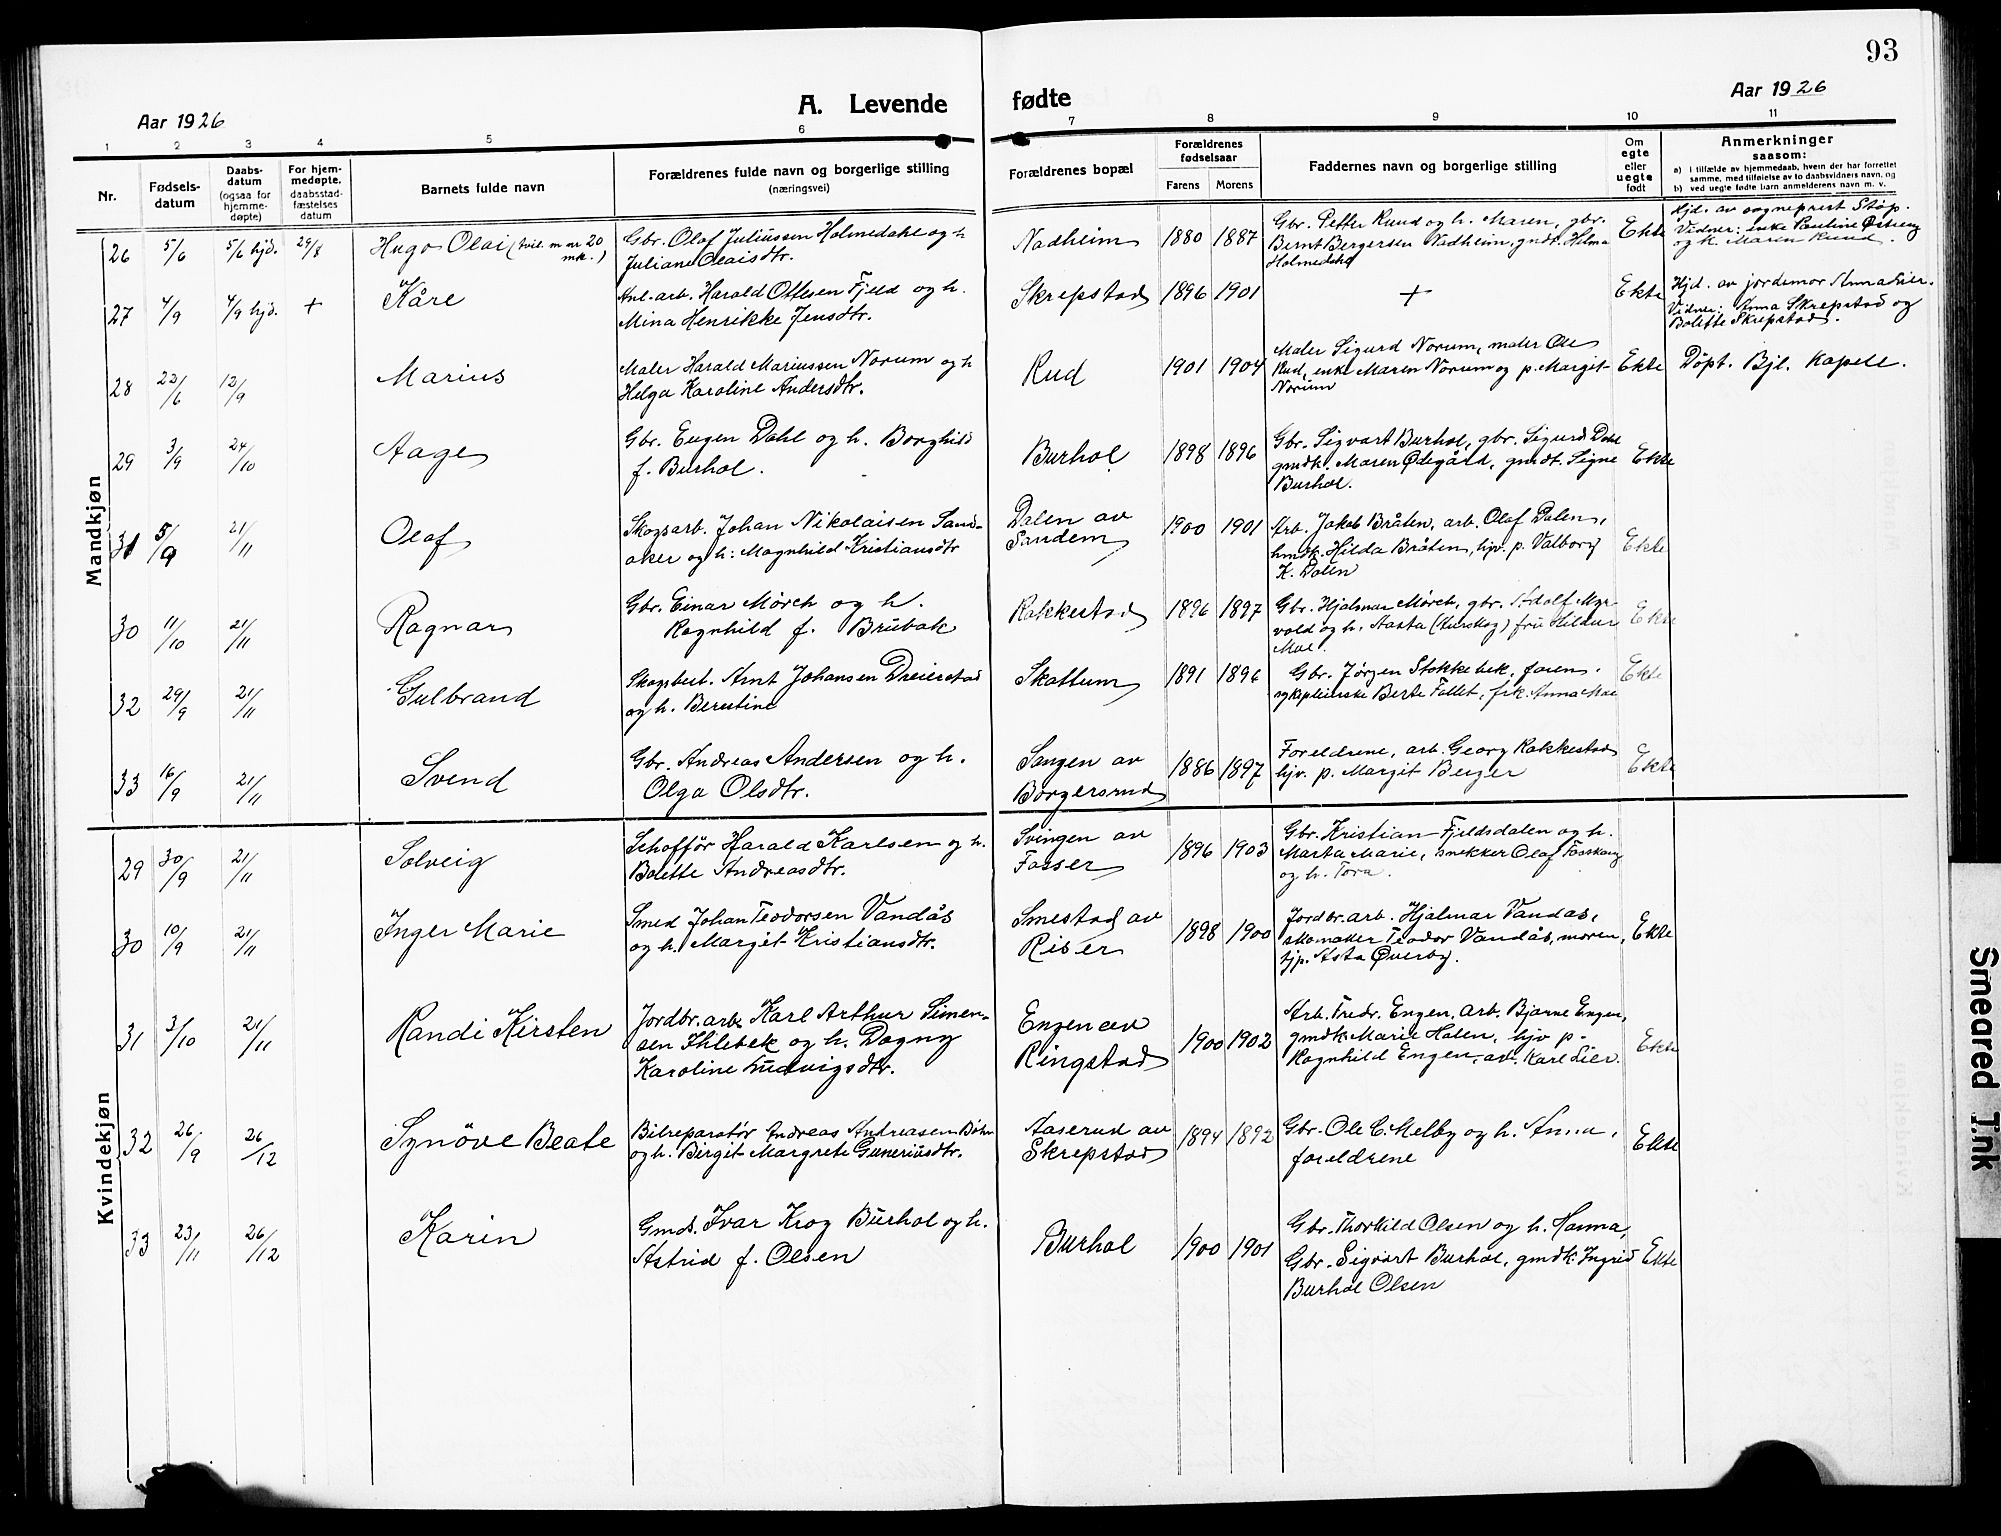 93
Aar 1926
A. Levende fødte
Aar 1926
1 2 3 4 5 6 7 8 9 10 11
Nr.
Fødsels-
datum
Daabs-
datum
(ogsaa for
hjemme-
døpte)
For hjem-
medøpte.
daabsstad-
fæstelses
datum
Barnets fulde navn
Forældrenes fulde navn og borgerlige stilling
(næringsvei)
Forældrenes bopæl
Forældrenes
fødselsaar
Farens Morens
Faddernes navn og borgerlige stilling
Om
egte
eller
uegte
født
Anmerkninger
saasom:
a) i tilfælde av hjemmedaab, hvem der har forrettet
samme, med tilføielse av to daabsvidners navn, og
b) ved uegte fødte barn anmelderens navn m. v.
Mandkjøn
26 5/6 5/6 hjd. 29/8 Hugo Olai (tvil. m nr 20
mk.)
Gbr. Olaf Juliussen Holmedahl og h
Juliane Olaisdtr.
Nadheim 1880 1887
Gbr. Petter Ruud og h. Maren, gbr.
Bernt Bergersen Nadheim, gmdt. Hilma
Holmedahl
Ekte
Hjd. av sogneprest Støp.
Vidner: enke Pauline Østreng
og h. Maren Ruud.
27 4/9 4/9 hjd. + Kåre
Anl. arb. Harald Ottesen Fjeld og h.
Mina Henrikke Jensdtr.
Skrepstad 1896 1901 + Ekte
Hjd. av jordsmor Anna Lier.
Vidner: Anna Skrepstad og
Bolette Skrepstad.
28 22/6 12/9 Marius
Maler Harald Mariussen Norum og h
Helga Karoline Andersdtr.
Rud 1901 1904
Maler Sigurd Norum, maler Ole
Rud, enke Maren Norum og p. Margit
Norum
Ekte Döpt. Bjl. Kapell.
29 3/9 24/10 Aage
Gbr. Eugen Dahl og h. Borghild
f. Burhol.
Burhol 1898 1896
Gbr. Sigvart Burhol, gbr. Sigurd Dahl
gmdk. Maren Ødegård, gmdt. Signe
Burhol.
Ekte
31 5/9 21/11 Olaf
Skogsarb. Johan Nikolaisen Sand-
aker og h: Magnhild Kristiansdtr
Dalen av
Sandem
1900 1901
Arb. Jakob Bråten, arb. Olaf Dalen,
hmdk. Hilda Bråten, hjv. p. Valborg
K. Dalen
Ekte
30 11/10 21/11 Ragnar
Gbr. Einar Mörch og h.
Ragnhild f. Brubak
Rakkestad 1896 1897
Gbr. Hjalmar Mörch, gbr. Adolf Myr-
vold og h. Aasta (Aurskog) fru Hildur
Moe.
Ekte
32 29/9 21/11 Gulbrand
Skogsbest. Arnt Johansen Dreierstad
og h. Berntine
Skattum 1891 1896
Gbr. Jørgen Stokkebek, faren.
sykepleierske Berte Fallet, frk. Anna Moe
Ekte
33 16/9 21/11 Svend
Gbr. Andreas Andersen og h.
Olga Olsdtr.
Sangen av
Borgersrud
1886 1897
Foreldrene, arb. Georg Rakkestad
hjv. p. Margit Berger
Ekte
Kvindekjøn
29 30/9 21/11 Solveig
Schofför Harald Karlsen og h.
Bolette Andreasdtr.
Svingen av
Fosser
1896 1903
Gbr. Kristian Fjeldsdalen og h.
Marta Marie, snekker Olaf
og h. Tora.
30 10/9 21/11 Inger Marie
Smed Johan Teodorsen Vandås
og h. Margit Kristiansdtr.
Smestad av
Riser
1898 1900
Jordbr. arb. Hjalmar Vandås,
skomaker Teodor Vandås, moren,
tjp. Asta Øverby.
Ekte
31 3/10 21/11 Randi Kirsten
Jordbr. arb. Karl Arthur Simen-
sen Ihlebek og h. Dagny
Karoline Ludvigsdtr.
Engen av
Ringstad
1900 1902
Arb. Fredr. Engen, arb. Bjarne Engen,
gmdk Marie Holen, hjv p.
Ragnhild Engen, arb. Karl Lier.
Ekte
32 26/9 26/12 Synöve Beate
Bilreparatør Andreas Andreasen Böhn
og h. Birgit Margrete Guneriusdtr.
Aaserud av
Skrepstad
1894 1892
Gbr. Ole C. Melby og h. Anna,
foreldrene
Ekte
33 23/11 26/12 Karin
Gmds. Ivar Krog Burhol og h.
Astrid f. Olsen
Burhol 1900 1901
Gbr. Thorkild Olsen og h. Hanna,
Gbr. Sigvart Burhol, gmdk. Ingrid
Burhol Olsen
Ekte
Smeared Ink